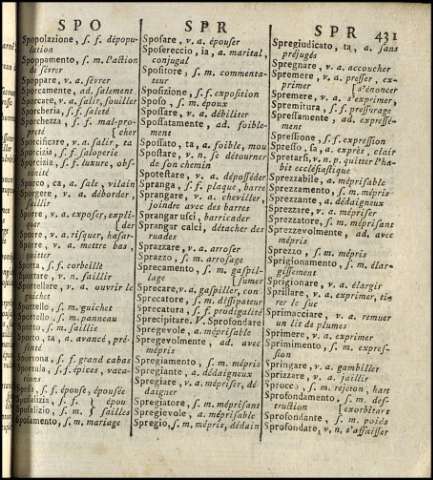 SPO
SPR
SPR 431
Spopolazione, s. f. dépopu-
lation
Spoppamento, s. m. l'action
de sévrer
Spoppare, v. a. sévrer
Sporcamente, ad. salement
Sporcare, v. a. salir, souiller
Sporcheria, s. f. saleté
Sporchezza, s. f. mal-pro-
preté [cher
Sporcificare, v. a. salir, ta
Sporcizia, s. f. saloperie
s. f. luxure, obs-
cénité
Sporco, ca, a. sale, vilain
Sporgere, v. a. déborder,
saillir
Sporre, v. a. exposer, expli-
quer [der
v. a. risquer, hasar-
v. a. mettre bas,
quitter
Sporta, s. f. corbeille
Sportare, v. n. saillir
Sportellare, v. a. ouvrir le
guichet
Sportello, s. m. guichet
s. m. panneau
Sporto, s. m. saillie
Sporto, ta, a. avancé, pré-
senté
Sportona, s. f. grand cabas
Sportula, s. f. épices, vaca-
tions
s. f. épouse, épousée
Sposalizia, s. f. } épou
Sposalizio, s. m. } sailles
Sposamento, s. m. mariage
Sposare, v. a. épouser
Sposereccio, ia, a. marital,
conjugal
Spositore, s. m. commenta-
teur
Sposizione, s. f. exposition
Sposo, s. m. époux
Spossare, v. a. débiliter
Spossatamente, ad. foible-
ment
Spossato, ta, a. foible, mou
Spostare, v. n. se détourner
de son chemin
Spotestare, v. a. dépossèder
Spranga, s. f. plaque, barre
Sprangare, v. a. cheviller,
joindre avec des barres
Sprangar usci, barricader
Sprangar calci, détacher des
ruades
Sprazzare, v. a. arroser
Sprazzo, s. m. arrosage
Sprecamento, s. m. gaspil-
lage [sumer
Sprecare, v. a. gaspiller, con
Sprecatore, s. m. dissipateur
Sprecatura, s. f. prodigalité
Sprecipitare. V. Sprofondare
Spregevole, a. méprisable
Spregevolmente, ad. avec
mépris
Spregiamento, s. m. mépris
Spregiante, a. dédaigneux
Spregiare, v. a. mépriser, dé
daigner
Spregiatore, s. m. méprisant
Spregievole, a. méprisable
Spregio, s. m. mépris, dédain
Spregiudicato, ta, a. sans
préjugés
Spregnare, v. a. accoucher
Spremere, v. a. presser, ex-
primer [s'énoncer
Spremere, v. a. s'exprimer,
Spremitura, s. f. pressurage
Spressamente, ad. expressé-
ment
Spressione, s. f. expression
Spresso, sa, a. exprès, clair
Spretarsi, v. n. p. quitter l'ha-
bit ecclésiastique
Sprezzabile, a. méprisable
Sprezzamento, s. m. mépris
Sprezzante, a. dédaigneux
Sprezzare, v. a. mépriser
Sprezzatore, s. m. méprisant
Sprezzevolmente, ad. avec
mépris
Sprezzo, s. m. mépris
Sprigionamento, s. m. élar-
gissement
Sprigionare, v. a. élargir
Sprillare, v. a. exprimer, ti-
rer le suc
Sprimacciare, v. a. remuer
un lit de plumes
Sprimere, v. a. exprimer
Sprimimento, s. m. expres-
sion
Springare, v. a. gambiller
Sprizzare, v. a. jaillir
Sprocco, s. m. rejeton, hart
Sprofondamento, s. m. des-
truction [exorbitant
Sprofondante, s. m. puits
Sprofondare, v. n. s'affaisser